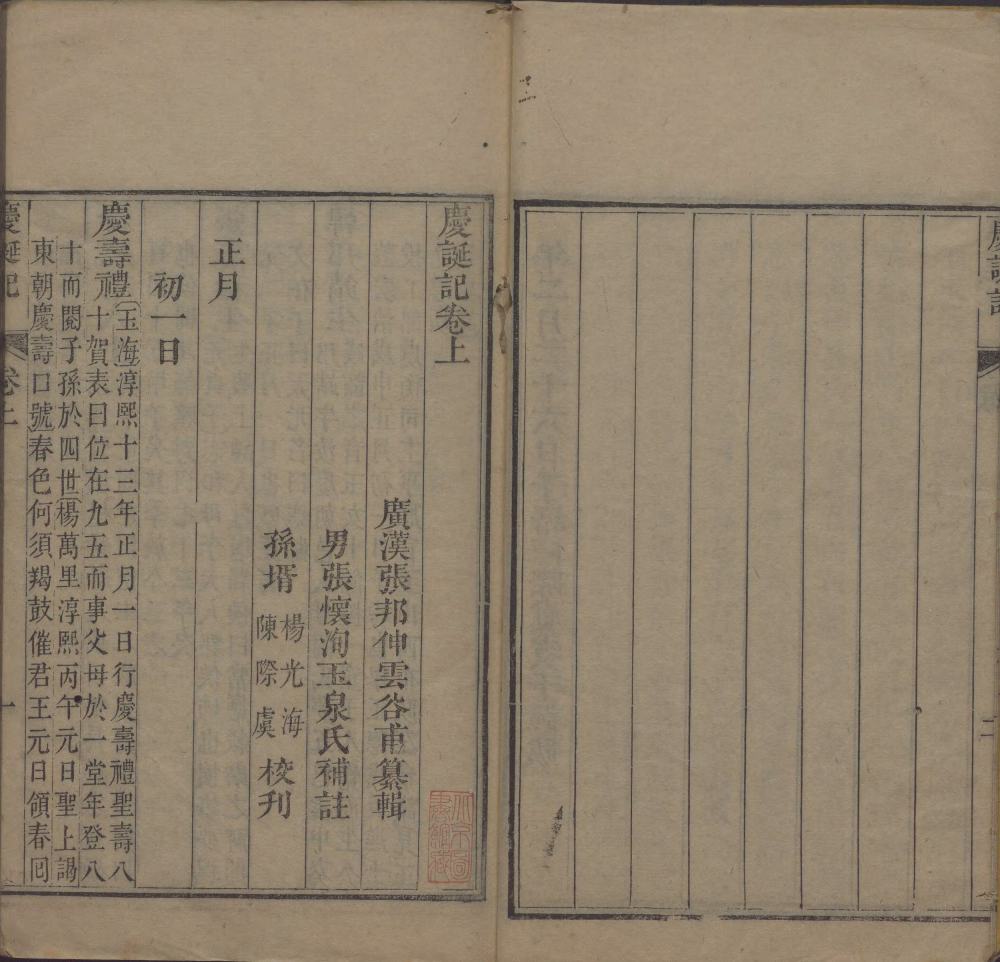 慶誕記
二
慶誕記卷上
廣漢張邦伸雲谷甫纂輯
男張懷洵玉泉氏補註
孫壻
楊光海
陳際虞
校刋
正月
初一日
慶壽禮
玉海淳熙十三年正月一日行慶壽禮聖壽八
十賀表曰位在九五而事父母於一堂年登八
十而閱子孫於四世楊萬里淳熙丙午元日聖上謁
東朝慶壽口號春色何須羯鼓催君王元日領春囘
慶誕記
卷上
一